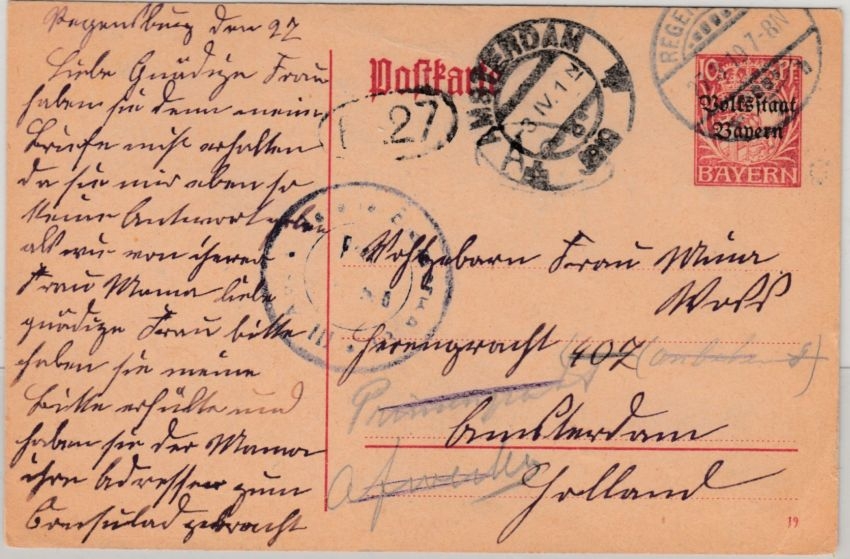 Regensburg den 27
Liebe Gnädige Frau
haben sie denn meine
Briefe nicht erhalten
da sie mir eben so
keine Antwort
als wie von ihrer
Frau Mama liebe
gnädige Frau bitte
haben sie meine
Bitte erfüllt und
haben sie der Mama
ihre Adresse zum
Consulad gebracht
Postkarte
AMSTERDAM
3 IV. 1
27
REGEN
7-8N
10
Volksstaat
Bayern
BAYERN
Wohlgebarn Frau Mina
Herengracht 407
Prinsengracht
Amsterdam
Holland
19